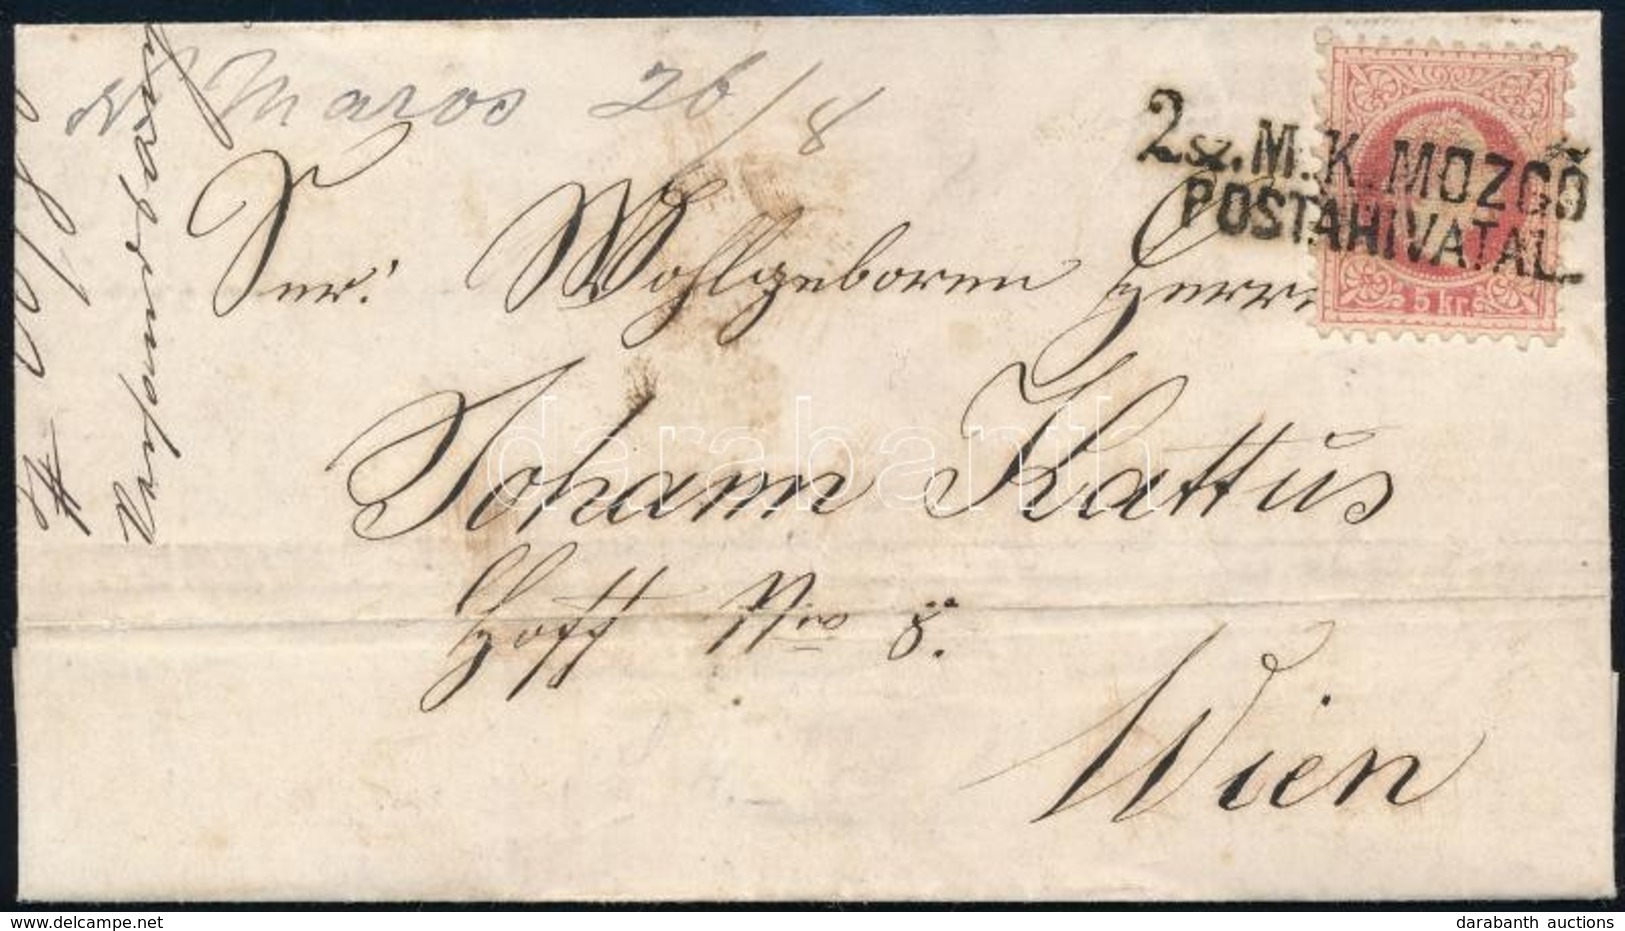 N Maros 26/8
2 sz. M. K. MOZGÓ
POSTAHIVATAL
5 Kr.
Sr. Wohlgeboren Herrn
Johann Kattus
Hoff Nro 8.
Wien
darabanth
www.delcampe.net
darabanth auctions